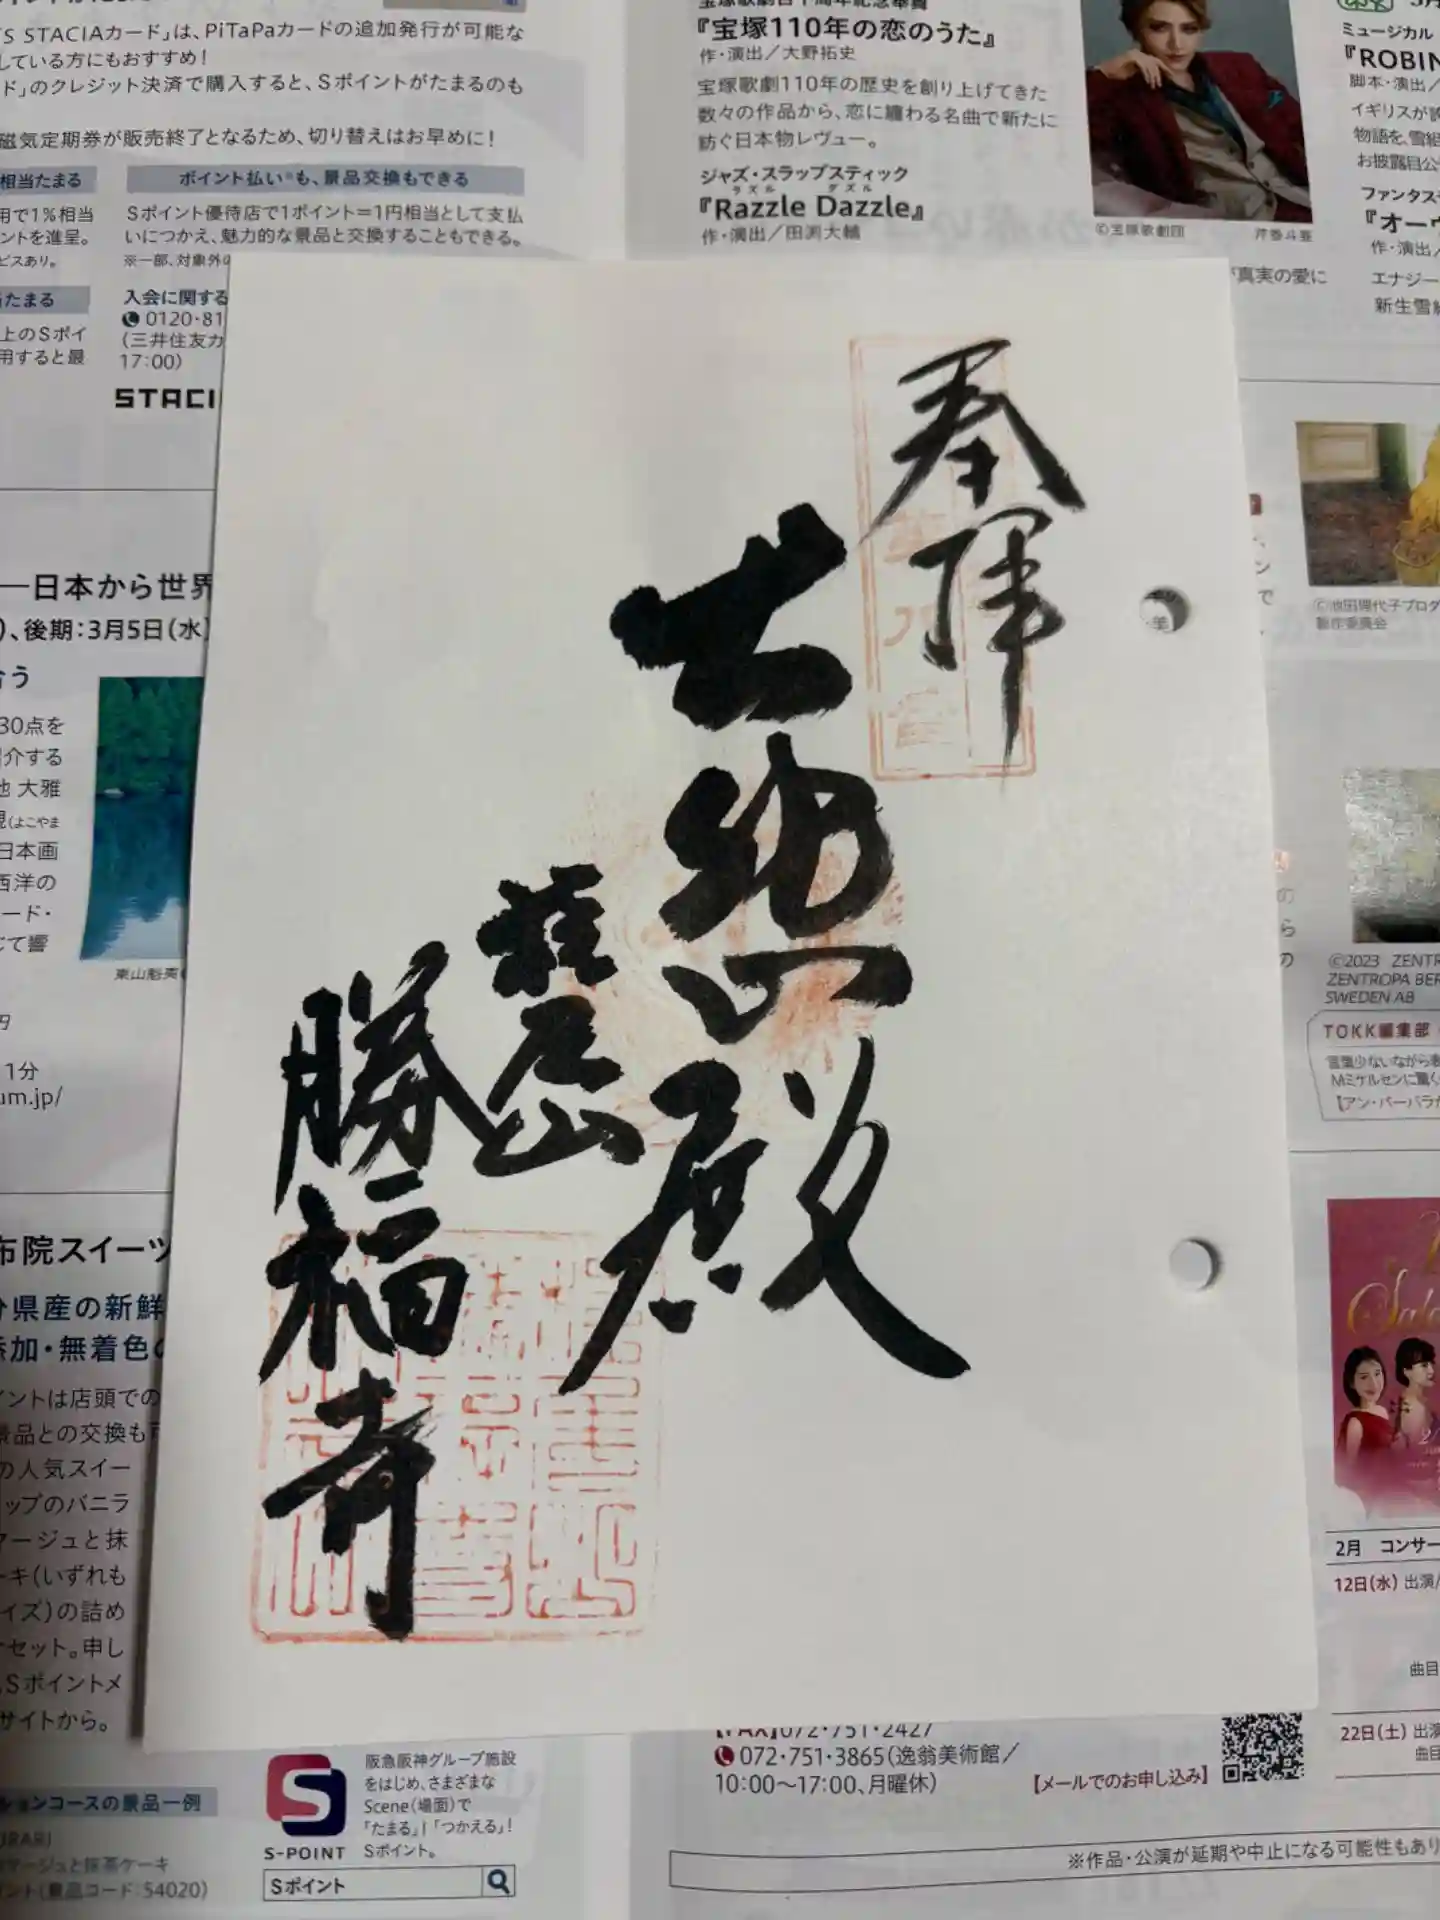 S STACIAカード」は、PiTaPaカードの追加発行が可能な
している方にもおすすめ!
ド」のクレジット決済で購入すると、Sポイントがたまるのも
磁気定期券が販売終了となるため、切り替えはお早めに!
相当たまる
用で1%相当
ントを進呈。
ビスあり。
ポイント払い※も、景品交換もできる
Sポイント優待店で1ポイント=1円相当として支払
いにつかえ、魅力的な景品と交換することもできる。
※一部、対象外の
たまる
上のSポイ
用すると最
入会に関する
0120・81
(三井住友カ
17:00)
STACI
『宝塚110年の恋のうた』
作・演出/大野拓史
宝塚歌劇110年の歴史を創り上げてきた
数々の作品から、恋に纏わる名曲で新たに
紡ぐ日本物レヴュー。
ジャズ・スラップスティック
『Razzle Dazzle』
ラズル ダズル
作・演出/田渕大輔
©宝塚歌劇団
芹香斗亜
ミュージカル
『ROBIN
脚本・演出/
イギリスが誇
物語を、雪組
お披露目公
ファンタス
『オーヴ
作・演出/
エナジー
新生雪組
真実の愛に
奉拝
大悲殿
應頂山
勝福寺
―日本から世界
)、後期:3月5日(水)
合う
30点を
介する
池 大雅
観(よこやま
日本画
西洋の
ード・
じて響
東山魁夷
円
1分
um.jp/
©池田理代子プロダ
製作委員会
©2023 ZENTR
ZENTROPA BER
SWEDEN AB
TOKK編集部
言葉少ないながら表
Mミケルセンに驚く
【アン・バーバラか
布院スイーツ
分県産の新鮮
添加・無着色の
イントは店頭での
景品との交換も可
の人気スイー
ップのバニラ
マージュと抹
ーキ(いずれも
イズ)の詰め
セット。申し
Sポイントメ
サイトから。
2月 コンサー
12日(水) 出演/
曲目
22日(土) 出演
曲目
【FAX】072・751・2427
072・751・3865(逸翁美術館/
10:00〜17:00、月曜休)
【メールでのお申し込み】
ションコースの景品一例
マージュと抹茶ケーキ
ント(景品コード:54020)
S-POINT
阪急阪神グループ施設
をはじめ、さまざまな
Scene(場面)で
「たまる」!「つかえる」!
Sポイント。
Sポイント
※作品・公演が延期や中止になる可能性もあり